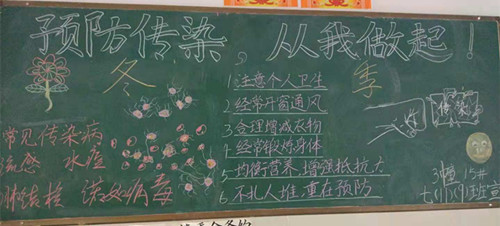 预防传染 从我做起！
冬 季
常见传染病
流感 水痘
肺结核 诺如病毒
1 注意个人卫生
2 经常开窗通风
3 合理增减衣物
4 经常锻炼身体
5 均衡营养,增强抵抗力
6 不扎人堆,重在预防
传染